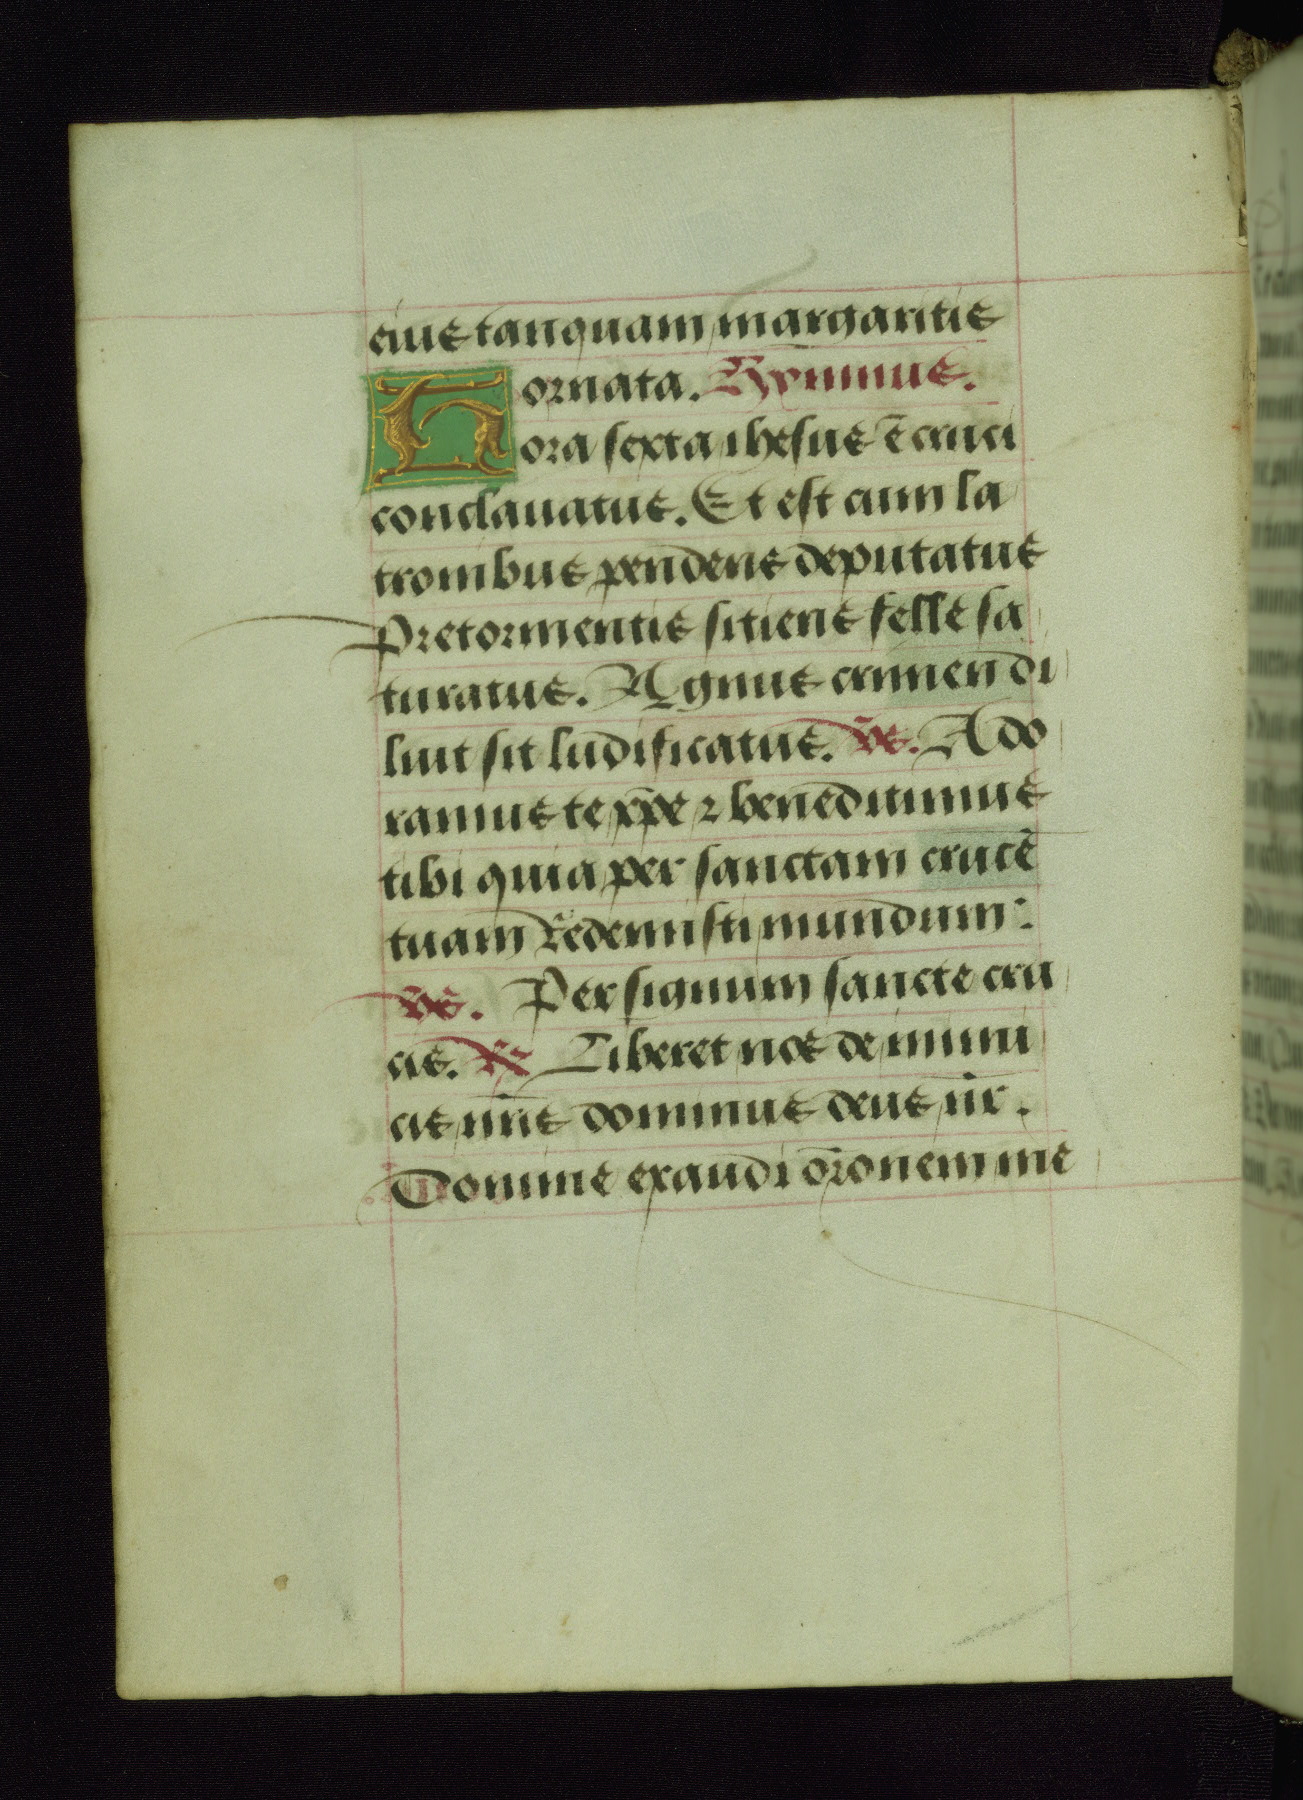 eius tanquam margaritis
ornata. Hymnus.
Hora sexta ihesus ē cruci
conclauatus. Et est cum la
tronibus pendens deputatus
Pretormentis sitiens felle sa
turatus. Agnus crimen di
luit sit ludificatus. v̄s. Ado
ramus te xp̄e ⁊ benedicimus
tibi quia per sanctam crucē
tuam Redemisti mundum:
v̄s. Per signum sancte cru
cis. ℟ Liberet nos de inimi
cis nr̄is dominus deus nr̄.
Domine exaudi or̄onem me